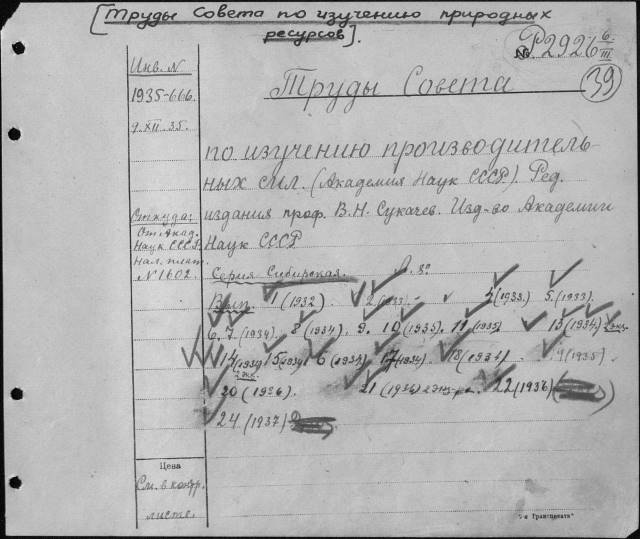 [Труды Совета по изучению природных
ресурсов].
№ Р2926 6/III
39
Инв. N
1935-666.
9.XII.35.
Труды Совета
по изучению производитель-
ных сил. (Академия Наук СССР). Ред.
издания проф. В.Н. Сукачев. Изд-во Академии
Наук СССР
Откуда:
От Акад.
Наук СССР
Нал. плат.
N 1602.
Серия Сибирская. 8°
Вып. 1 (1932) 2 (1933) 4 (1933) 5. (1933).
6, 7 (1934). 8 (1934). 9. 10 (1935). 11 (1935) 13 (1934) 2 экз.
14 (1934) 15 (1934) 16 (1934) 17 (1934) 18 (1934) 19 (1935)
2 экз.
20 (1936) 21 (1936) 22 (1936)
24. (1937)
Цена
См. в контр.
листе.